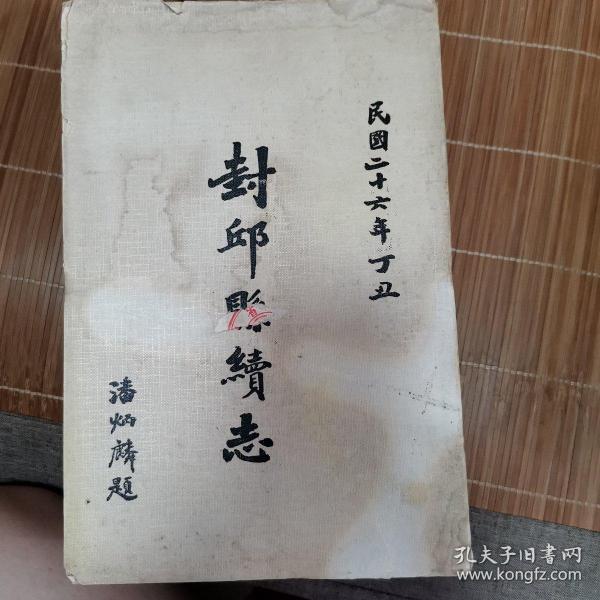 民國二十六年丁丑
封邱縣續志
潘炳麟題
孔夫子旧书网
www.kongfz.com